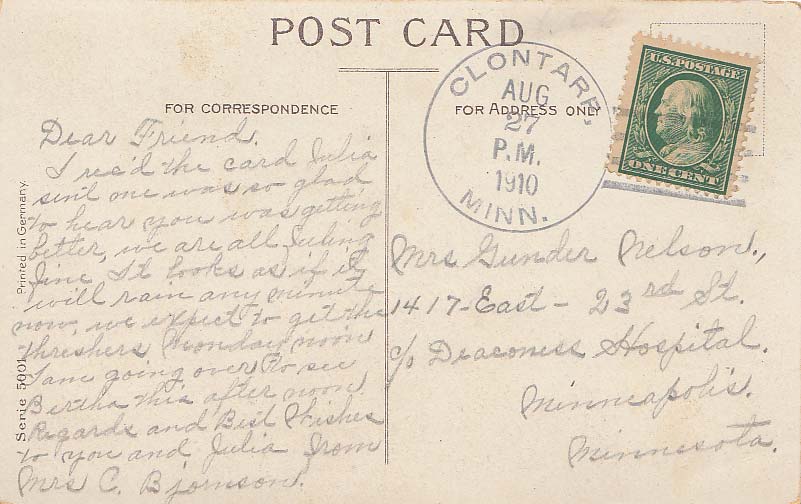 POST CARD
FOR CORRESPONDENCE
FOR ADDRESS ONLY
CLONTARF,
AUG
27
P.M.
1910
MINN.
U.S. POSTAGE
ONE CENT
Printed in Germany.
Serie 5001
Dear Friend.
I rec'd the card Julia
sent one was so glad
to hear you was getting
better, we are all fuling
fine. It looks as if it
will rain any minute
now, we expect to get the
threshers Monday noon
I am going over to see
Bertha this after noon
Regards and Best Wishes
to you and Julia from
Mrs C. Bjornson.
Mrs Gunder Nelson.,
1417-East-23rd St.
c/o Deaconess Hospital.
Minneapolis.
Minnesota.